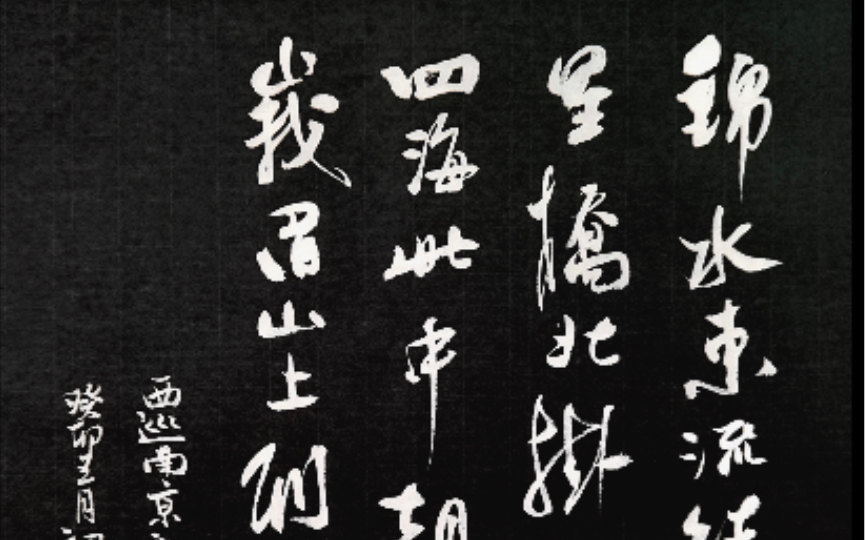 錦水東流
星橋北掛
四海此中朝
峩眉山上列
西巡南京
癸卯月